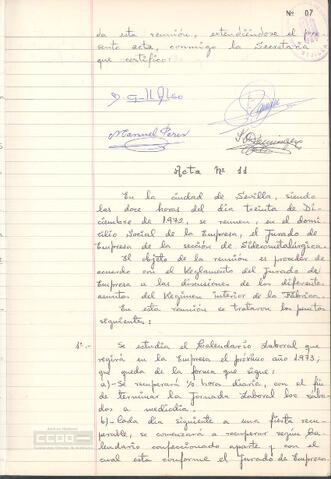 Nº 07
da esta reunión, extendiéndose el pre-
sente acta, conmigo la Secretaria
que certifico:
Manuel Perez
Acta Nº 11
En la ciudad de Sevilla, siendo
las doce horas del dia treinta de Di-
ciembre de 1972, se reunen, en el domi-
cilio Social de la Empresa, el Jurado de
Empresa de la sección de Siderometalúrgica.
El objeto de la reunión es proceder de
acuerdo con el Reglamento del Jurado de
Empresa a las discusiones de los diferentes
asuntos del Regimen interior de la Fábrica.
En esta reunión se trataron los puntos
siguientes:
1º.- Se estudia el Calendario Laboral que
regirá en la Empresa el próximo año 1973,
que queda de la forma que sigue:
a)- Se recuperará ½ hora diaria, con el fin
de terminar la Jornada Laboral los saba-
dos a mediodia.
b)- Cada dia siguiente a una fiesta recu-
perable, se comenzará a recuperar según Ca-
lendario confeccionado aparte y con el
cual esta conforme el Jurado de Empresa.
CCOO